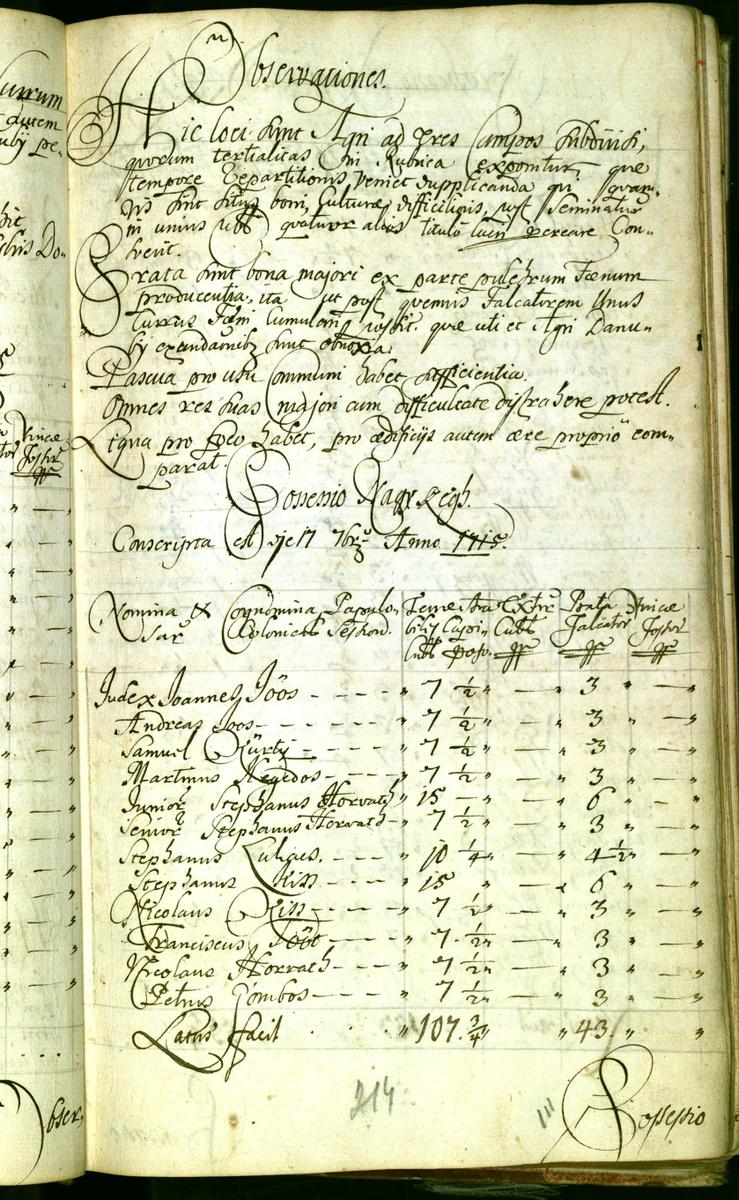 Observationes.
Hic loci sunt Agri ad tres Campos subdivisi,
quorum tertialitas in Rubrica exponitur, que
tempore Repartitionis veniet dupplicanda qui quam-
vis sint situs boni, Culturæ difficilioris, post seminatur
in unius Cubb quatuor alios titulo lucri procreare Con-
sveit.
Prata sunt bona majori ex parte pulchrum Foenum
producentia, ita ut post quemvis Falcatorem Unus
Currus Foeni Cumulari possit. que uti et Agri Danu-
by exundanibz sunt obnoxia
Pascua pro usu Communi habet sufficientia.
Omnes res suas majori cum difficultate distrahere potest.
Ligna pro foco habet, pro ædificijs autem ære proprio com-
parat.
Possessio Nagy Legh.
Conscripta est die 17 7bris Anno 1715.
Nomina & Cognomina Populo- Terræ Ara Extir Prata Vineæ
Sar Colonical Session. bilis Capi- Cubb Falcator Fossor
Cubb Poson.
Judex Joannes Jöös - - - - " 7 1/2 " — " 3 " — "
Andreas Joos - - - - " 7 1/2 " — " 3 " — "
Samuel Kürty - - - " 7 1/2 " — " 3 " — "
Martinus Hegedos - - - - " 7 1/2 " — " 3 " — "
Junior Stephanus Horvath " 15 — " — " 6 " — "
Senior Stephanus Horvath - " 7 1/2 " — " 3 " — "
Stephanus Lukacs. - - - " 10 1/4 " — " 4 1/2 " — "
Stephanus Kiss - - - - " 15 " — " 6 " — "
Nicolaus Kiss - - - - " 7 1/2 " — " 3 " — "
Franciscus Tööt - - - " 7. 1/2 " — " 3 " — "
Nicolaus Horvath - - - " 7 1/2 " — " 3 " — "
Petrus Gombos - - - - " 7 1/2 " — " 3 " — "
Latus facit . . . " 107. 3/4 " " 43. " "
214
Possessio
Obser,